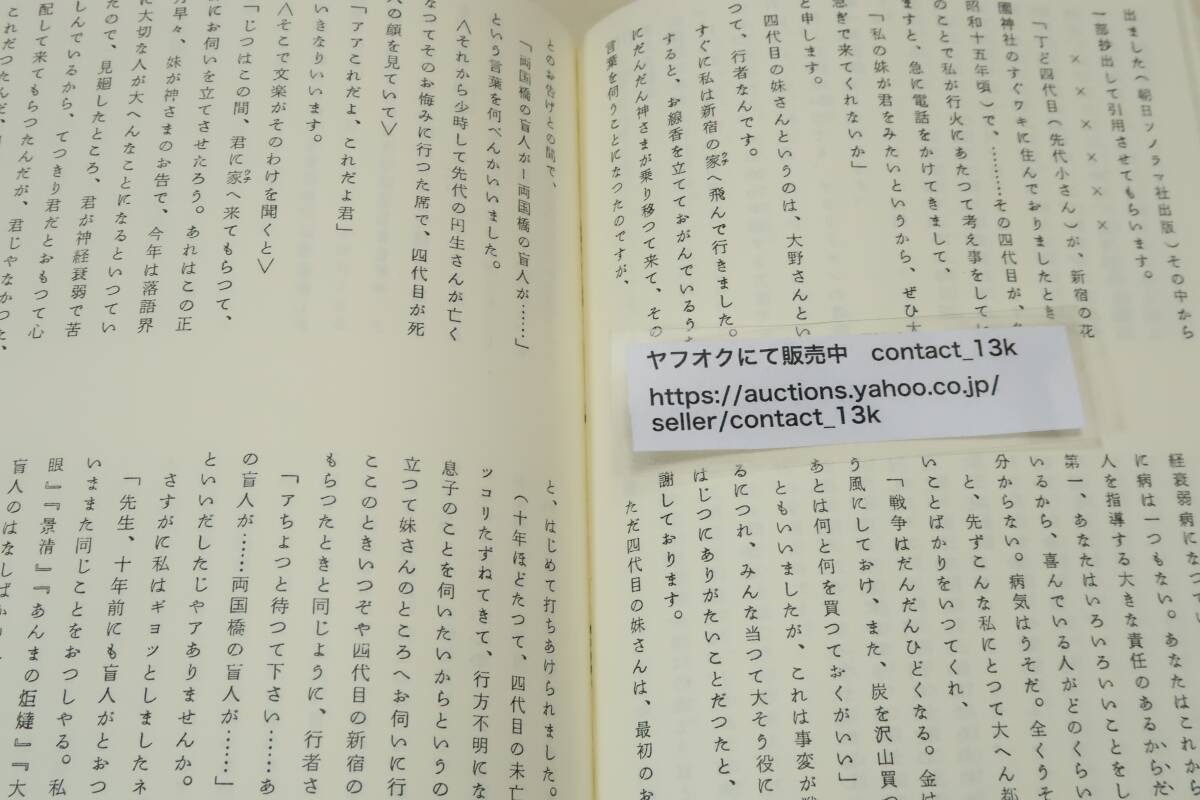 出ました(朝日ソノラマ社出版)その中から
一部抄出して引用させてもらいます。
× × × × ×
「丁ど四代目(先代小さん)が、新宿の花
園神社のすぐワキに住んでおりましたとき
昭和十五年頃)で、………その四代目が、
のことで私が行火にあたつて考え事をして
ますと、急に電話をかけてきまして、
「私の妹が君をみたいというから、ぜひ大
急ぎで来てくれないか」
と申します。
四代目の妹さんというのは、大野さんとい
つて、行者なんです。
すぐに私は新宿の家へ飛んで行きました。
すると、お線香を立てておがんでいるう
にだんだん神さまが乗り移つて来て、その
言葉を伺うことになつたのですが、
経衰弱病になつてい
に病は一つもない。あなたはこれか
人を指導する大きな責任のあるからだ、
第一、あなたはいろいろいいことをし
いるから、喜んでいる人がどのくらい
分からない。病気はうそだ。全くうそ
と、先ずこんな私にとつて大へん都
いことばかりをいつてくれ、
「戦争はだんだんひどくなる。金は
う風にしておけ、また、炭を沢山買つ
あとは何と何を買つておくがいい」
ともいいましたが、これは事変が
るにつれ、みんな当つて大そう役に
はじつにありがたいことだつたと、
謝しております。
ただ四代目の妹さんは、最初のお
とのお告げとの間で、
「両国橋の盲人がー両国橋の盲人が……」
という言葉を何べんかいいました。
<それから少時して先代の円生さんが亡く
なつてそのお悔みに行つた席で、四代目が死
人の顔を見ていて>
「アアこれだよ、これだよ君」
いきなりいいます。
<そこで文楽がそのわけを聞くと>
「じつはこの間、君に家へ来てもらつて、
にお伺いを立てさせたろう。あれはこの正
月早々、妹が神さまのお告で、今年は落語界
に大切な人が大へんなことになるといつてい
たので、見廻したところ、君が神経衰弱で苦
しんでいるから、てつきり君だとおもつて心
配して来てもらつたんだが、君じやなかつた、
これだつたんだ、
と、はじめて打ちあけられました。
(十年ほどたつて、四代目の未亡
ッコリたずねてきて、行方不明にな
息子のことを伺いたいからというの
立つて妹さんのところへお伺いに行
ここのときいつぞや四代目の新宿の
もらつたときと同じように、行者さ
「アちよつと待つて下さい……あ
の盲人が……両国橋の盲人が……」
といいだしたじやアありませんか。
さすがに私はギョッとしましたネ
「先生、十年前にも盲人がとおつ
いままた同じことをおつしやる。私
眼』『景清』『あんまの炬燵』『大
盲人のはなしばか
ヤフオクにて販売中 contact_13k
https://auctions.yahoo.co.jp/
seller/contact_13k